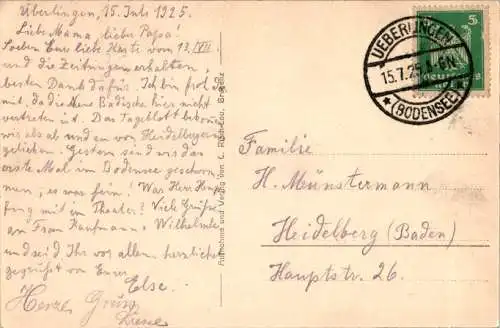 Überlingen, 15. Juli 1925.
Liebe Mama, lieber Papa!
Soeben Eure liebe Karte vom 13./VII.
und die Zeitungen erhalten,
besten Dank dafür. Ich bin froh
mit, da die Neue Badische hier nicht
vertreten ist. Das Tageblatt bekommen
wir als ab und zu von Heidelbergern
geliehen. Gestern sind wir das
erste Mal im Bodensee geschwom-
men, es war fein! War Herr
mit im Theater? Viele Grüße
an Frau Kaufmann, Wilhelmine
und seid Ihr vor allem herzlich
gegrüßt von Eurer
Else.
Herzl. Gruß
Liesel
Aufnahme und Verlag von C. Bregenz
UEBERLINGEN
15.7.25
(BODENSEE)
5
Familie
H. Münstermann
Heidelberg (Baden)
Hauptstr. 26.